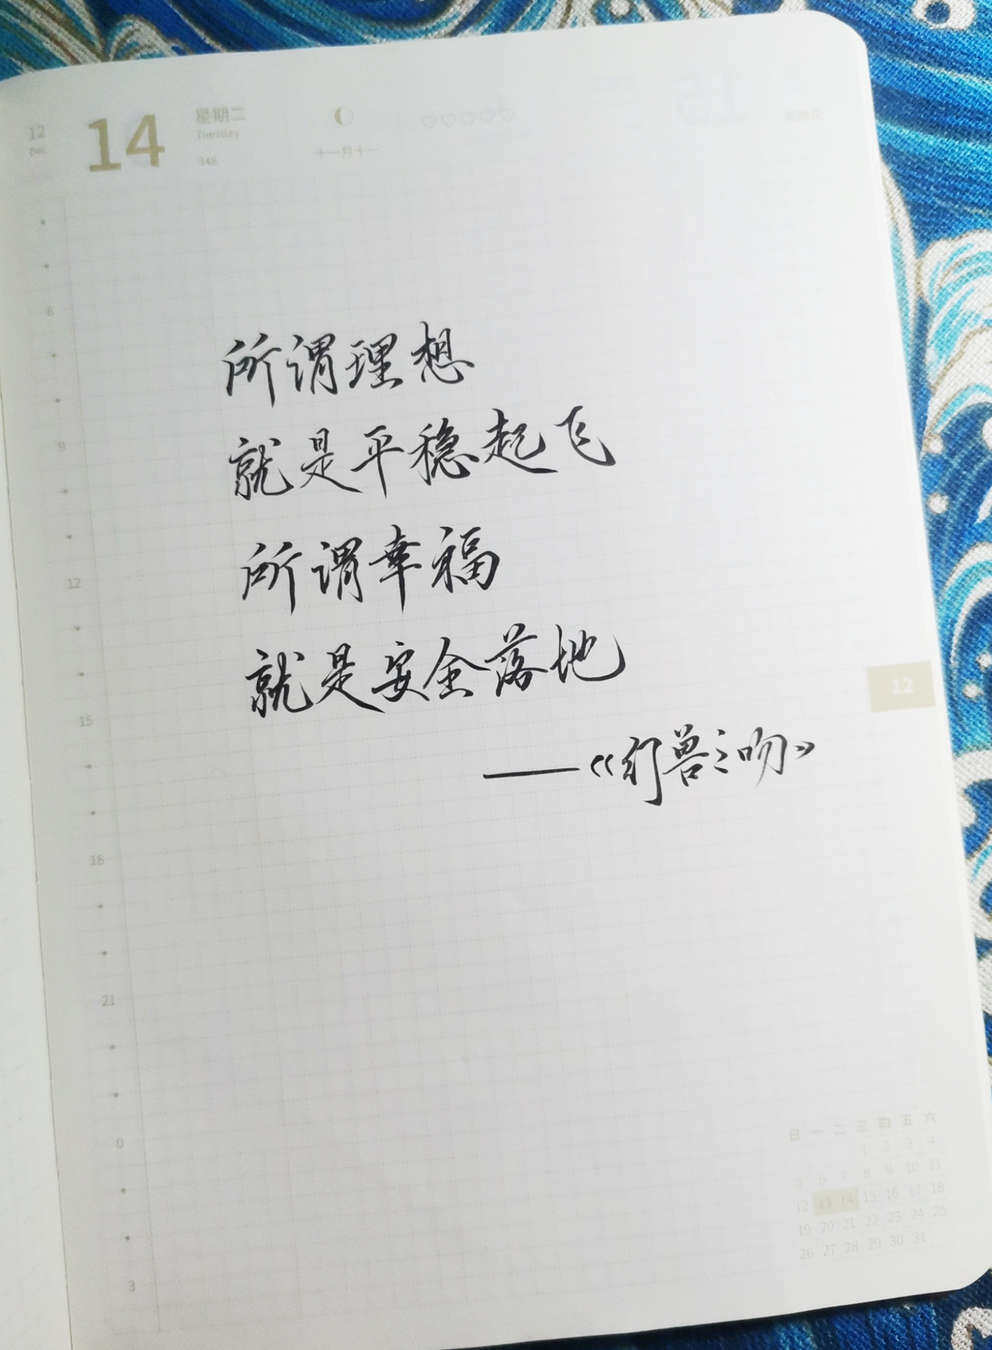 12
Dec
14
星期二
Tuesday
348
十一月十一
6
9
12
15
18
21
0
3
所谓理想
就是平稳起飞
所谓幸福
就是安全落地
——《幻兽之吻》
12
日 一 二 三 四 五 六
1 2 3 4
5 6 7 8 9 10 11
12 13 14 15 16 17 18
19 20 21 22 23 24 25
26 27 28 29 30 31